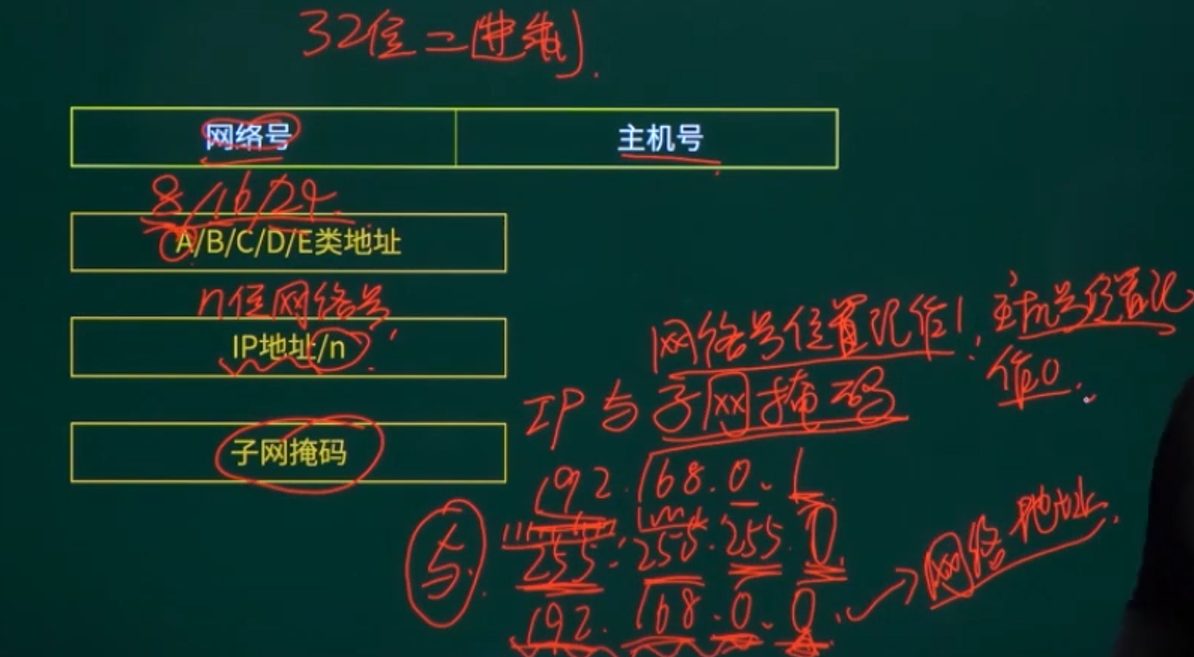 32位二进制.
网络号 主机号
8/16/24
A/B/C/D/E类地址
n位网络号
IP地址/n
网络号位置取值1, 主机号位置取
值0.
IP与子网掩码
子网掩码
192.168.0.1
与
255.255.255.0
192.168.0.0 → 网络地址.